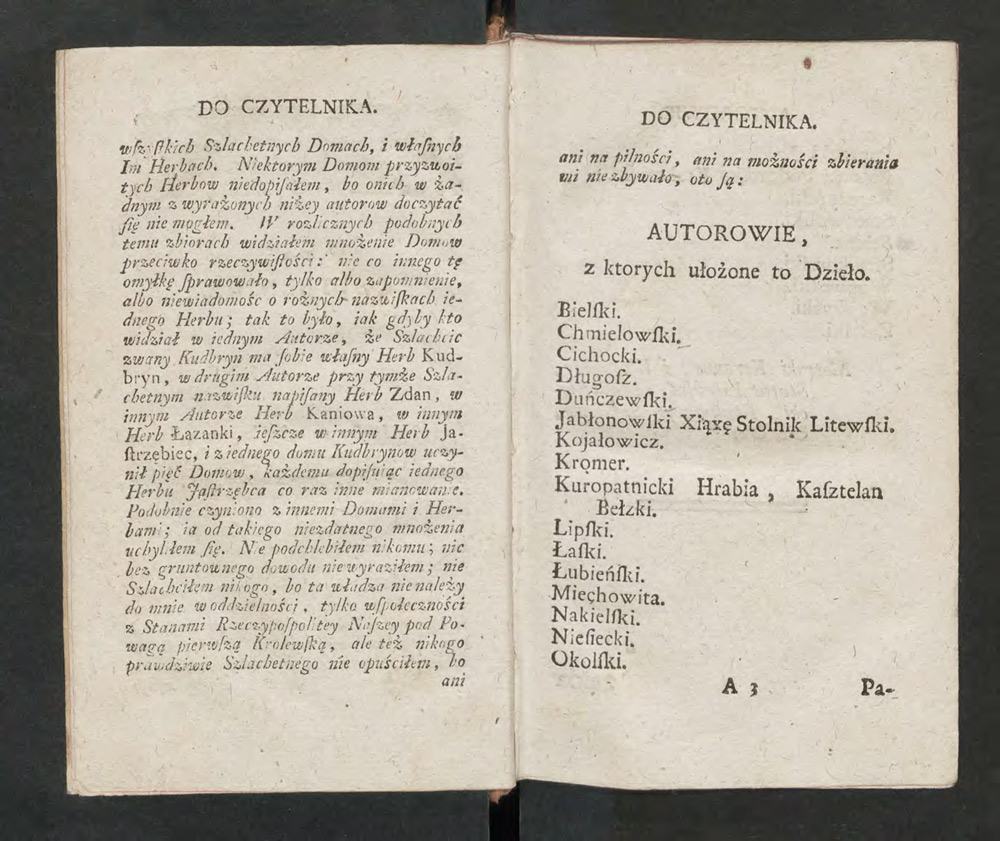 DO CZYTELNIKA.
wſzyſtkich Szlachetnych Domach, i właſnych
Im Herbach. Niektorym Domom przyzwoi-
tych Herbow niedopiſałem, bo onich w ża-
dnym z wyrażonych niżey autorow doczytać
ſię nie mogłem. W rozlicznych podobnych
temu zbiorach widziałem mnożenie Domow
przeciwko rzeczywiſtości: nie co innego tę
omyłkę ſprawowało, tylko albo zapomnienie,
albo niewiadomośc o rożnych nazwiſkach ie-
dnego Herbu; tak to było, iak gdyby kto
widział w iednym Autorze, że Szlachcic
zwany Kudbryn ma ſobie właſny Herb Kud-
bryn, w drugim Autorze przy tymże Szla-
chetnym nazwiſku napiſany Herb Zdan, w
innym Autorze Herb Kaniowa, w innym
Herb Łazanki, ieſzcze w innym Herb Ja-
ſtrzębiec, i z iednego domu Kudbrynow uczy-
nił pięć Domow, każdemu dopiſuiąc iednego
Herbu Jaſtrzębca co raz inne mianowanie.
Podobnie czyniono z innemi Domami i Her-
bami; ia od takiego niezdatnego mnożenia
uchyliłem ſię. Nie podchlebiłem nikomu; nic
bez gruntownego dowodu niewyraziłem; nie
Szlachciłem nikogo, bo ta władza nienależy
do mnie w oddzielności, tylko wſpołeczności
z Stanami Rzeczypoſpolitey Naſzey pod Po-
wagą pierwſzą Krolewſką, ale też nikogo
prawdziwie Szlachetnego nie opuściłem, bo
ani
DO CZYTELNIKA.
ani na pilności, ani na możności zbierania
mi niezbywało, oto ſą:
AUTOROWIE,
z ktorych ułożone to Dzieło.
Bielſki.
Chmielowſki.
Cichocki.
Długoſz.
Duńczewſki.
Jabłonowſki Xiąxę Stolnik Litewſki.
Kojałowicz.
Kromer.
Kuropatnicki Hrabia, Kaſztelan
Bełzki.
Lipſki.
Łaſki.
Łubieńſki.
Miechowita.
Nakielſki.
Nieſiecki.
Okolſki.
A 3 Pa-